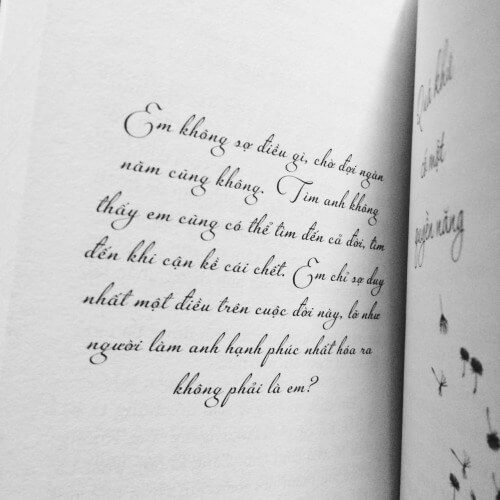 Em không sợ điều gì, chờ đợi ngàn
năm cũng không. Tìm anh không
thấy em cũng có thể tìm đến cả đời, tìm
đến khi cận kề cái chết. Em chỉ sợ duy
nhất một điều trên cuộc đời này, lỡ như
người làm anh hạnh phúc nhất hóa ra
không phải là em?
Quá khứ
có một
quyền năng